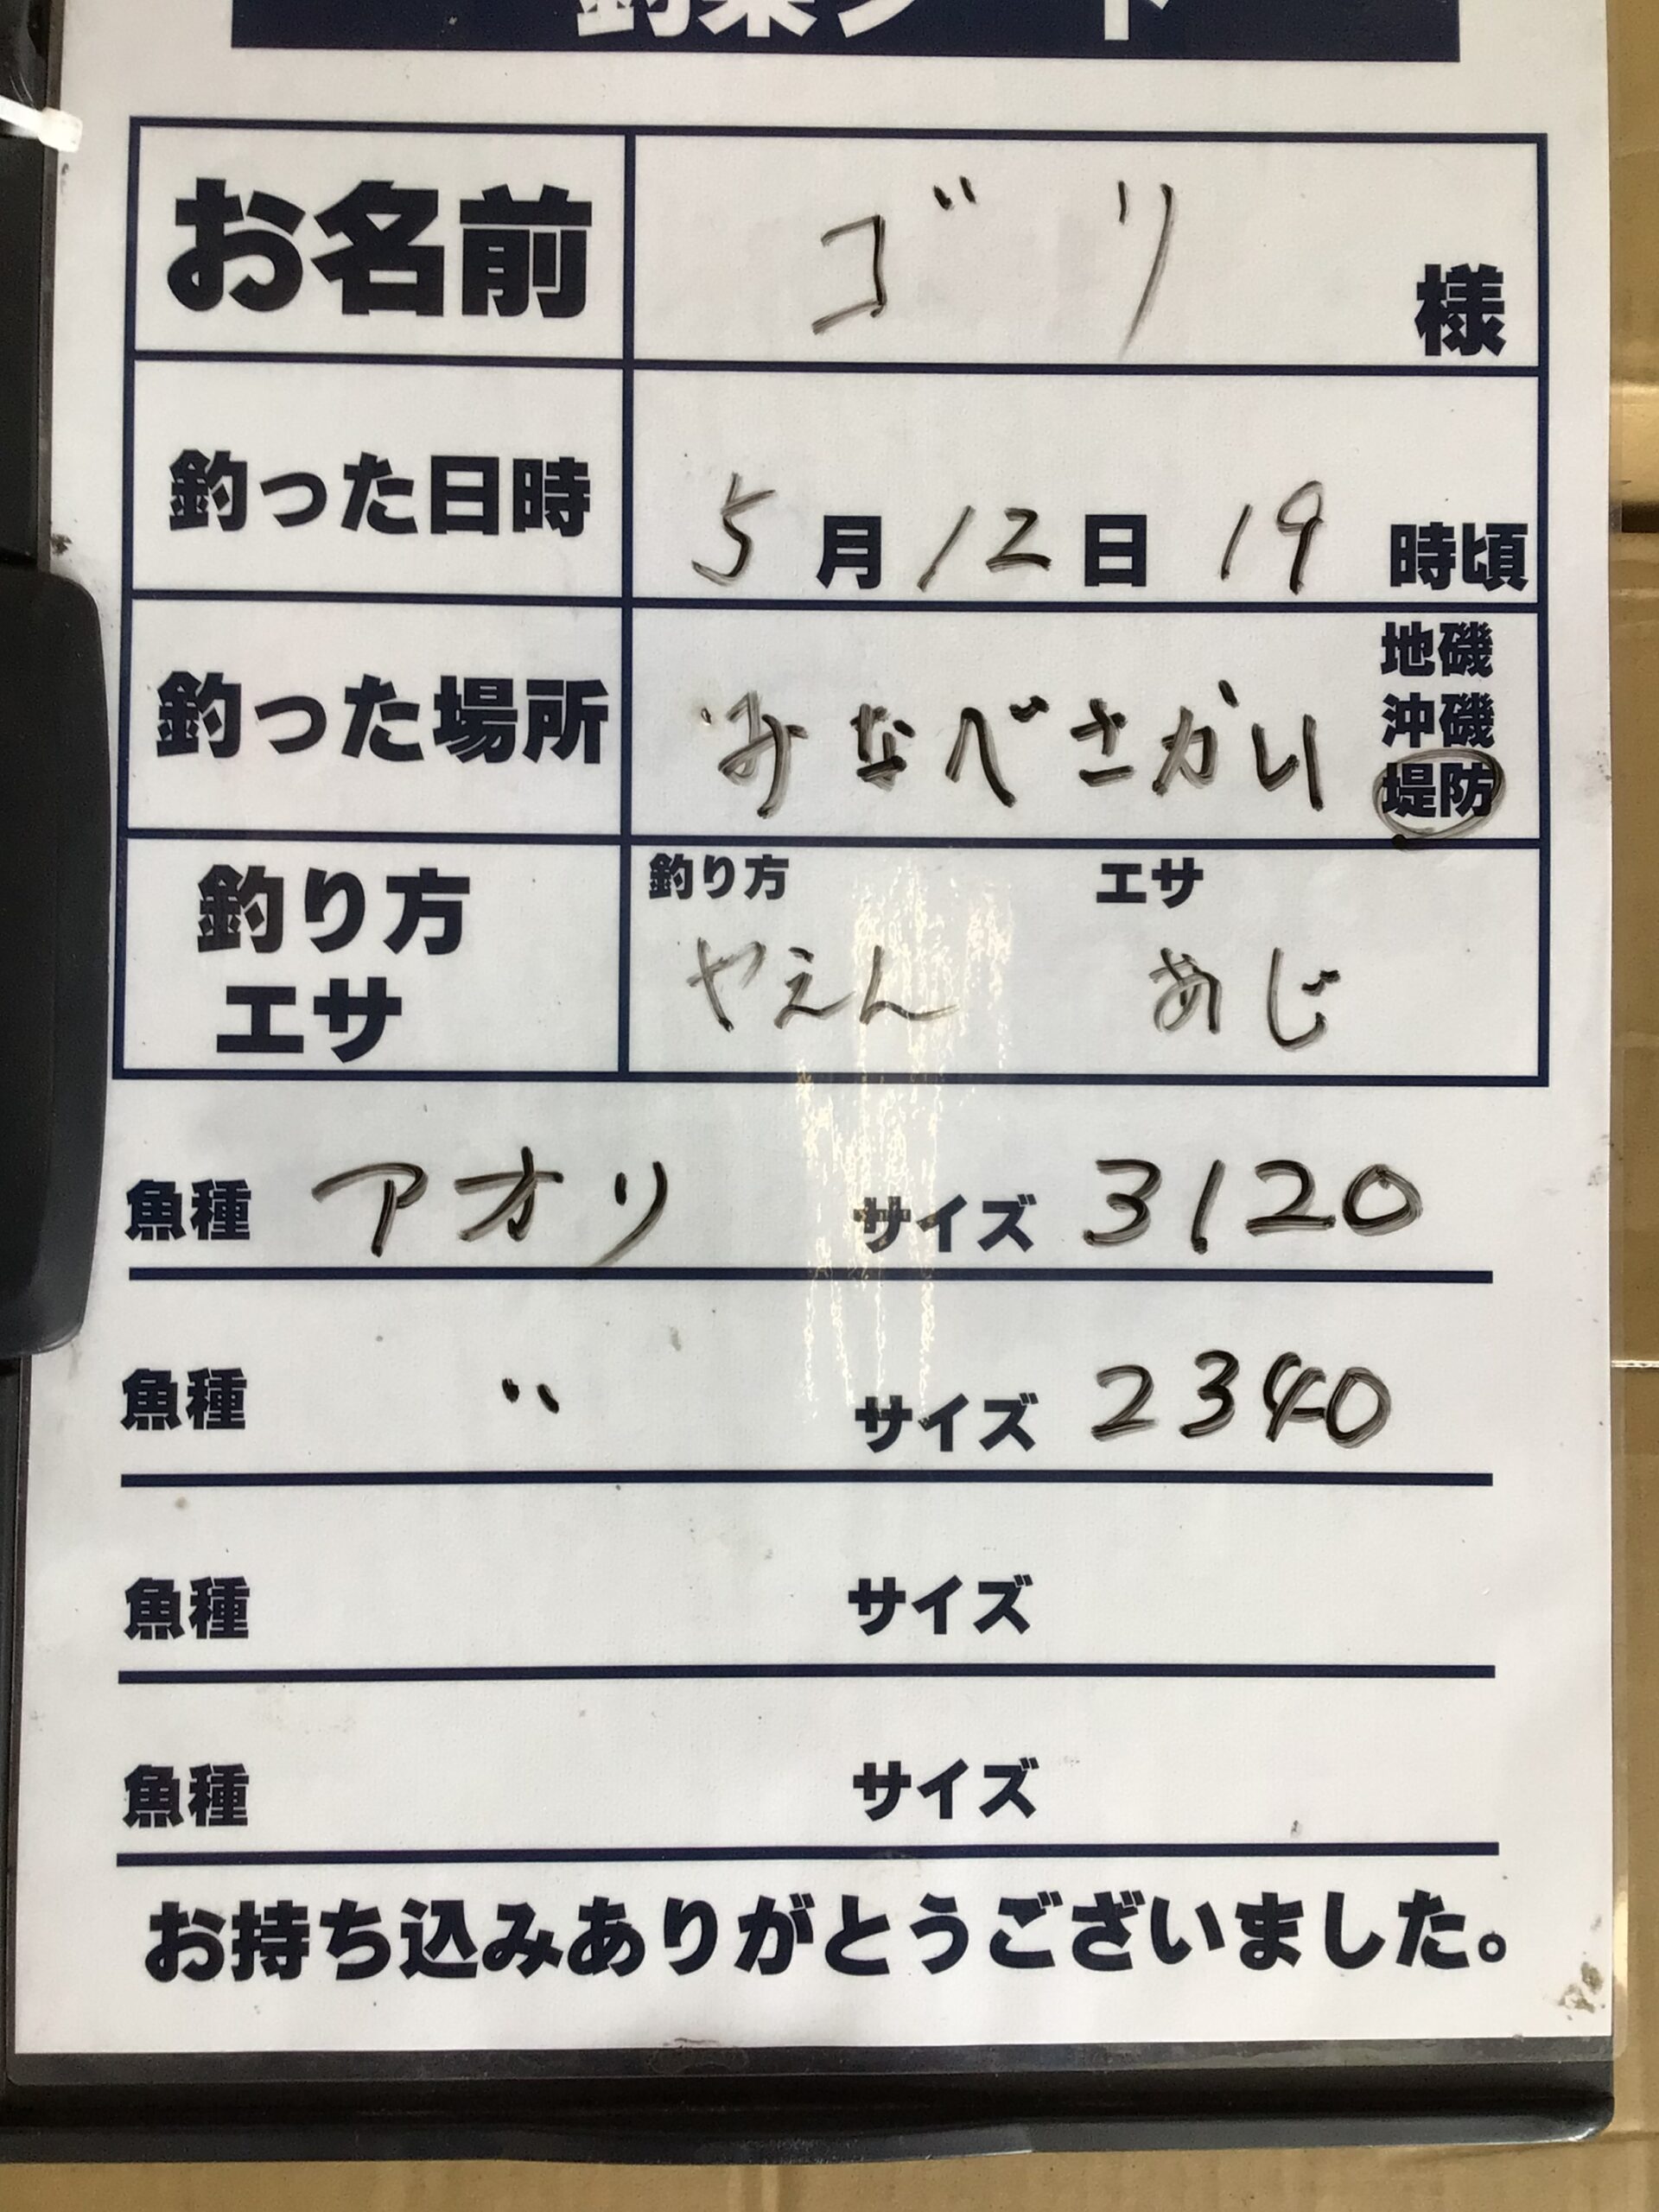 釣果シート
お名前 ゴリ 様
釣った日時 5月12日 19時頃
地磯
沖磯
釣った場所 みなべさかい 堤防
釣り方 エサ
釣り方
エサ
やえん あじ
魚種 アオリ サイズ 3120
魚種 〃 サイズ 2340
魚種 サイズ
魚種 サイズ
お持ち込みありがとうございました。